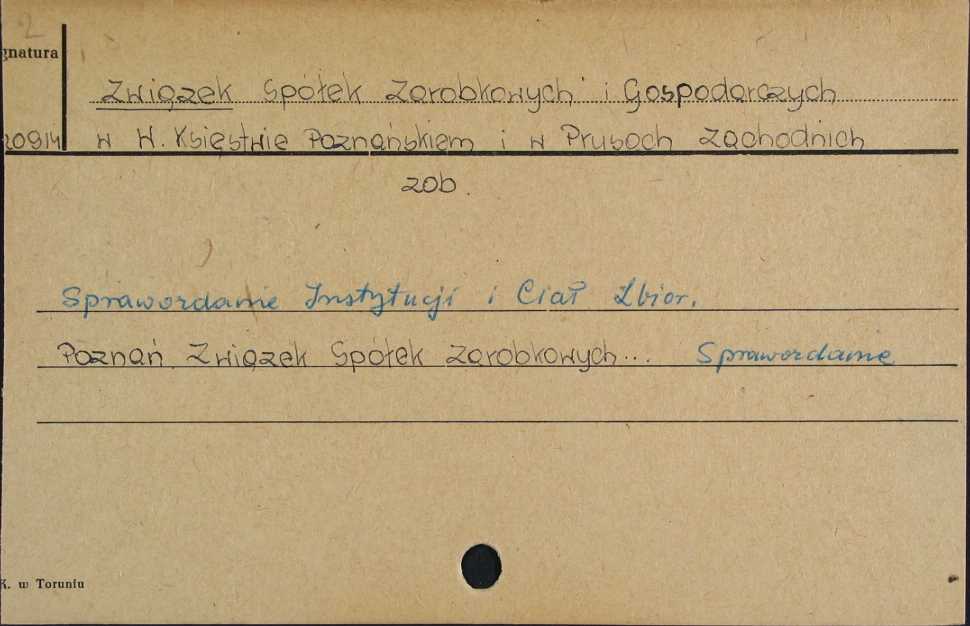 2
gnatura
Związek Spółek Zarobkowych i Gospodarczych
20914 w W. Księstwie Poznańskiem i w Prusach Zachodnich
zob.
Sprawozdanie Instytucji i Ciał Zbior.
Poznań. Związek Spółek Zarobkowych... Sprawozdanie
K. w Toruniu